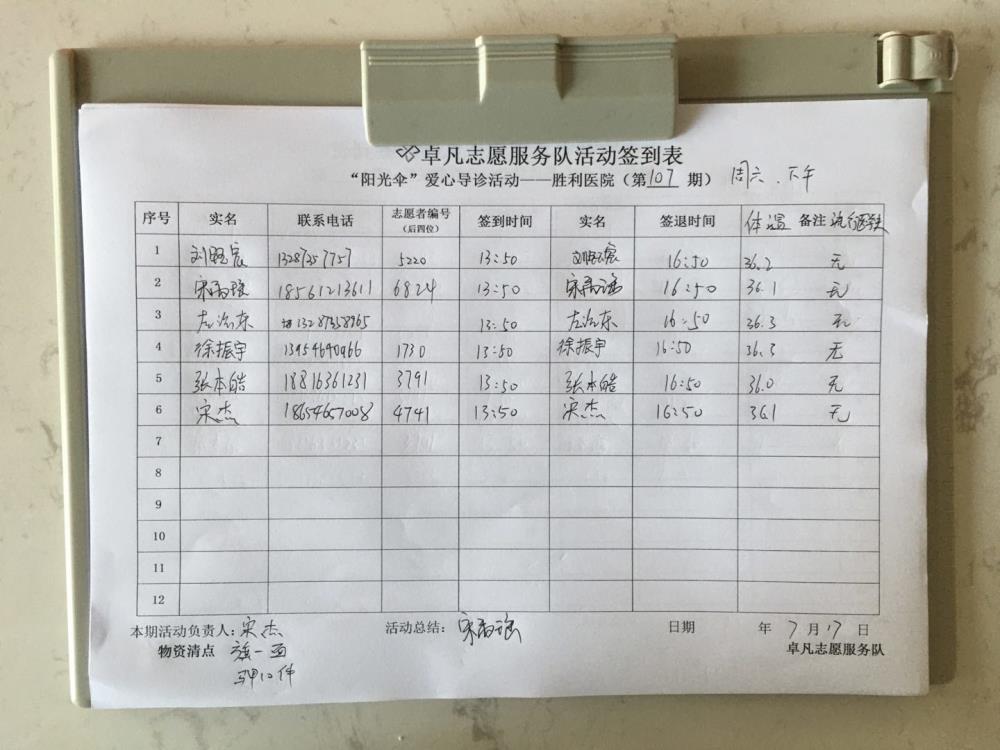 卓凡志愿服务队活动签到表
“阳光伞”爱心导诊活动——胜利医院（第107期） 周六.下午
序号 实名 联系电话 志愿者编号（后四位） 签到时间 实名 签退时间 体温 备注
1 5220 13:50 16:50 36.2 无
2 18561213611 6824 13:50 16:50 36.1 无
3 13:50 16:50 36.3 无
4 徐振宇 1730 13:50 徐振宇 16:50 36.3 无
5 张本皓 18816361231 3791 13:50 张本皓 16:50 36.0 无
6 宋杰 18654657008 4741 13:50 宋杰 16:50 36.1 无
7
8
9
10
11
12
本期活动负责人：宋杰 活动总结： 日期 年 7月17日
物资清点 旗一面 卓凡志愿服务队
马甲12件